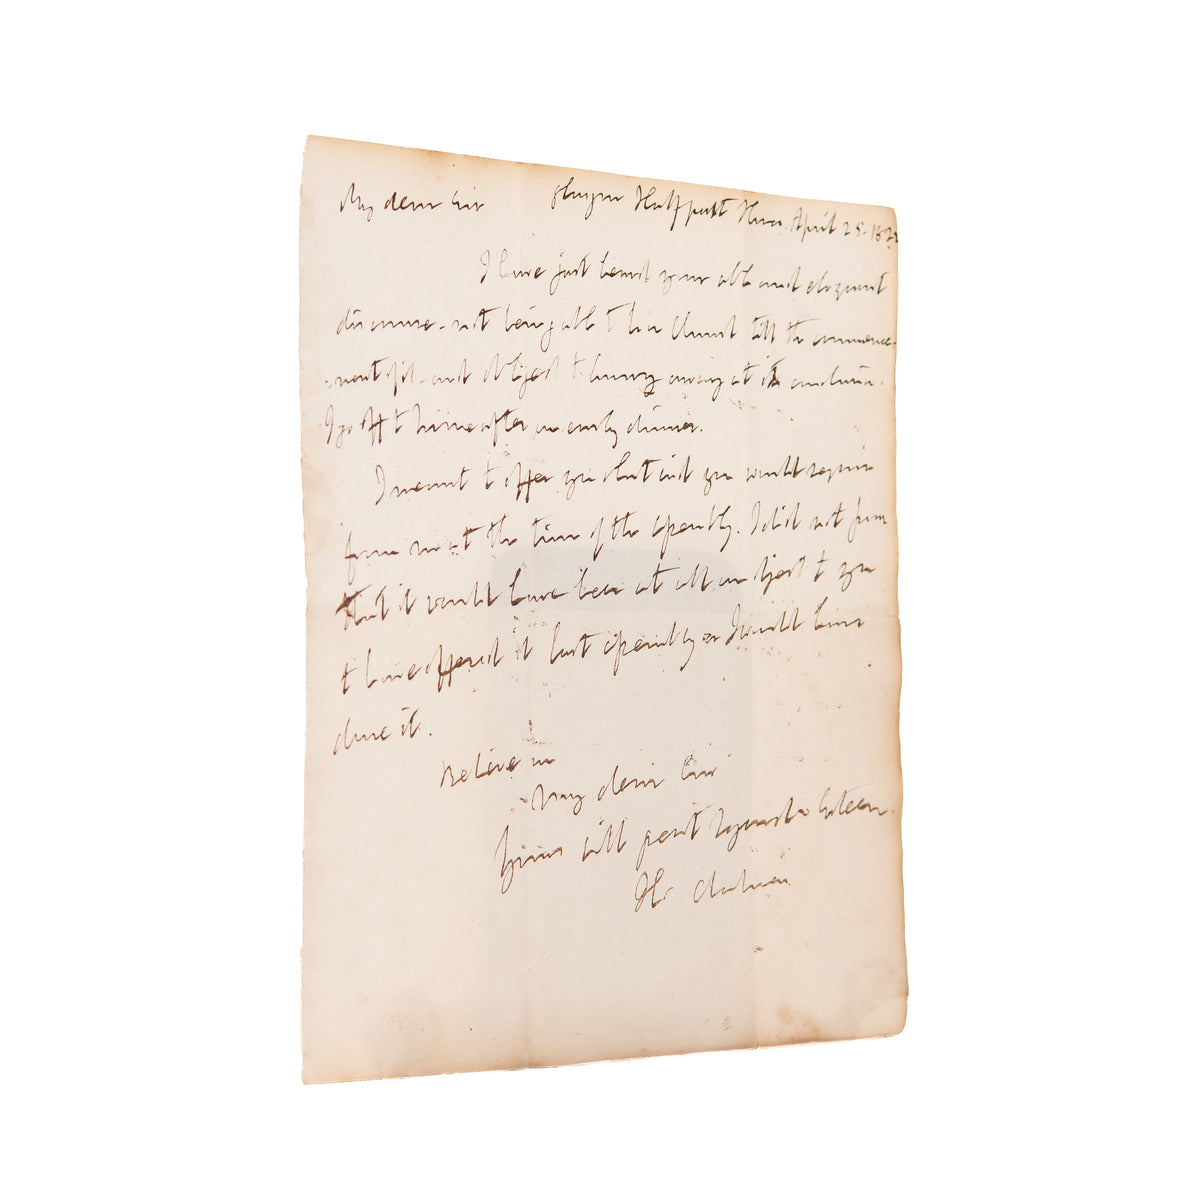 My dear Sir Half past three April 25. 182
I have just heard your able and eloquent
discourse - not being able to Church till the commence-
-ment of it - and obliged to hurry away at its conclusion.
I go off to home after an early dinner.
I meant to offer you that aid you would require
from me at the time of the Assembly. I did not
that it would have been at all an object to you
to have offered it last Assembly or I would have
done it.
Believe me
My dear Sir
Yours with great regard & Esteem
Th. Chalmers